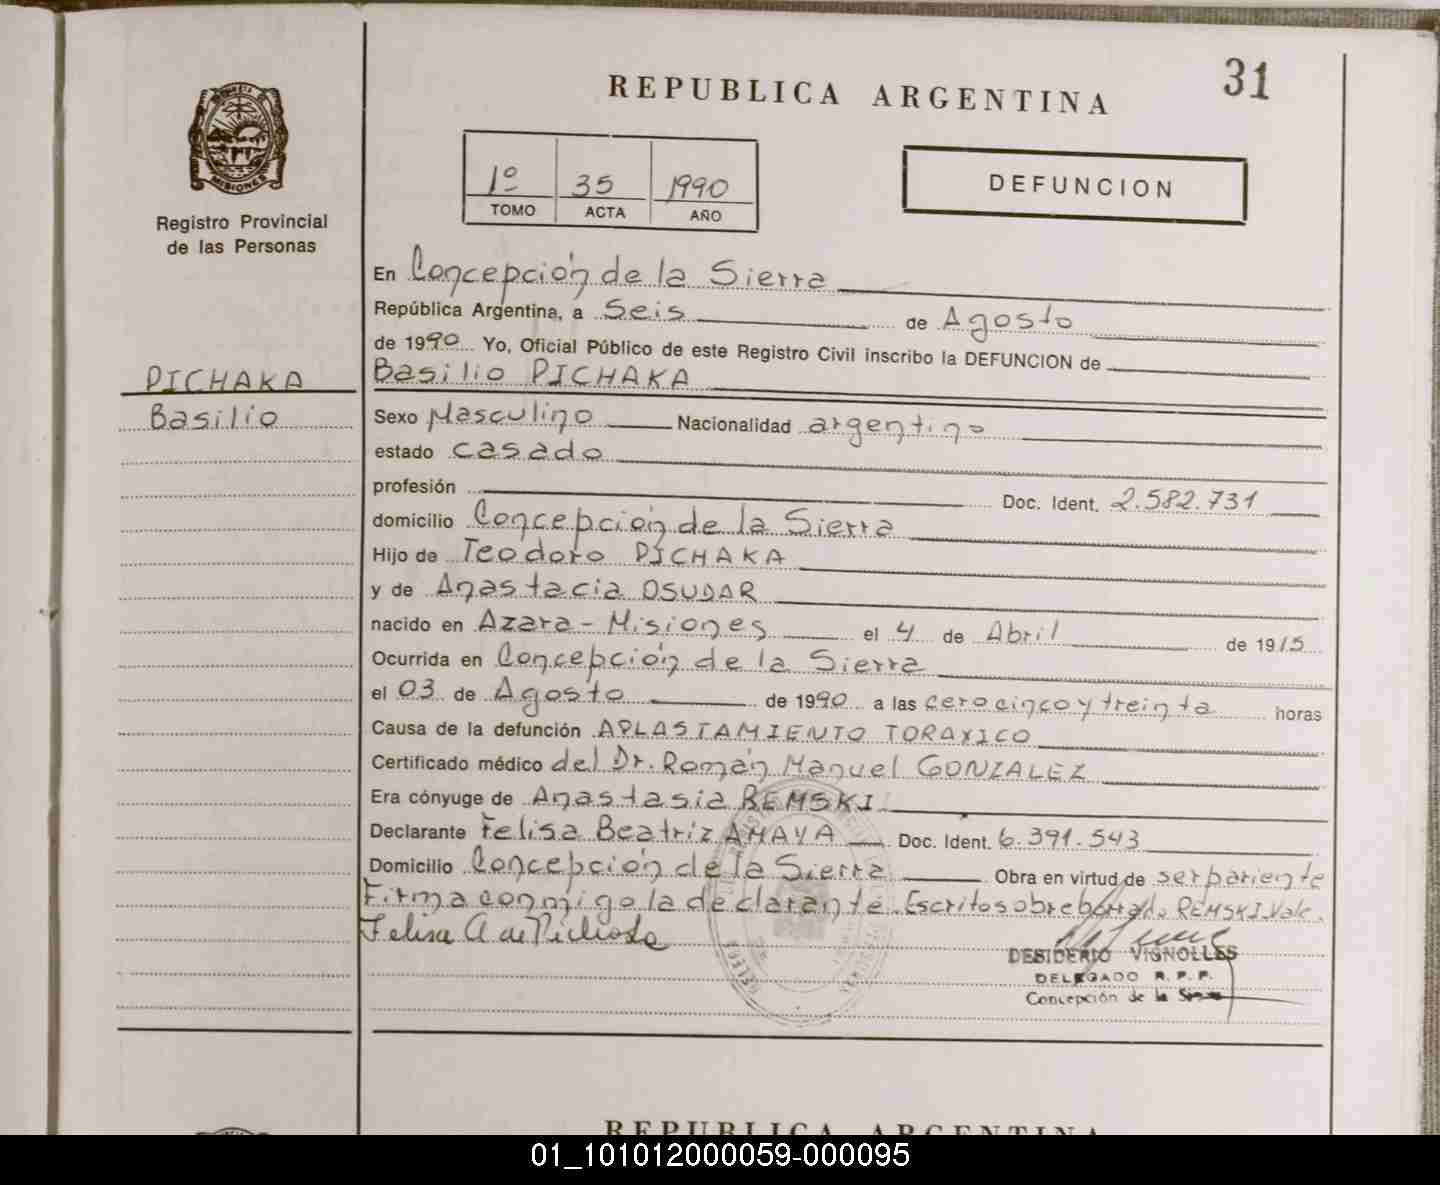 31
REPUBLICA ARGENTINA
MISIONES
Registro Provincial
de las Personas
1º 35 1990
TOMO ACTA AÑO
DEFUNCION
PICHAKA
Basilio
En Concepción de la Sierra
República Argentina, a Seis de Agosto
de 1990 Yo, Oficial Público de este Registro Civil inscribo la DEFUNCION de
Basilio PICHAKA
Sexo Masculino Nacionalidad argentino
estado casado
profesión Doc. Ident. 2.582.731
domicilio Concepción de la Sierra
Hijo de Teodoro PICHAKA
y de Anastacia OSUDAR
nacido en Azara - Misiones el 4 de Abril de 1915
Ocurrida en Concepción de la Sierra
el 03 de Agosto de 1990 a las cero cinco y treinta horas
Causa de la defunción APLASTAMIENTO TORAXICO
Certificado médico del Dr. Román Manuel GONZALEZ
Era cónyuge de Anastasia REMSKI
Declarante Felisa Beatriz AMAYA Doc. Ident. 6.391.543
Domicilio Concepción de la Sierra Obra en virtud de ser pariente
Firma conmigo la declarante. Escrito sobre borrado REMSKI Vale.
Felisa A de Pichaka
DESIDERIO VIGNOLLES
DELEGADO R. P. P.
Concepción de la Sierra
REPUBLICA ARGENTINA
01_101012000059-000095